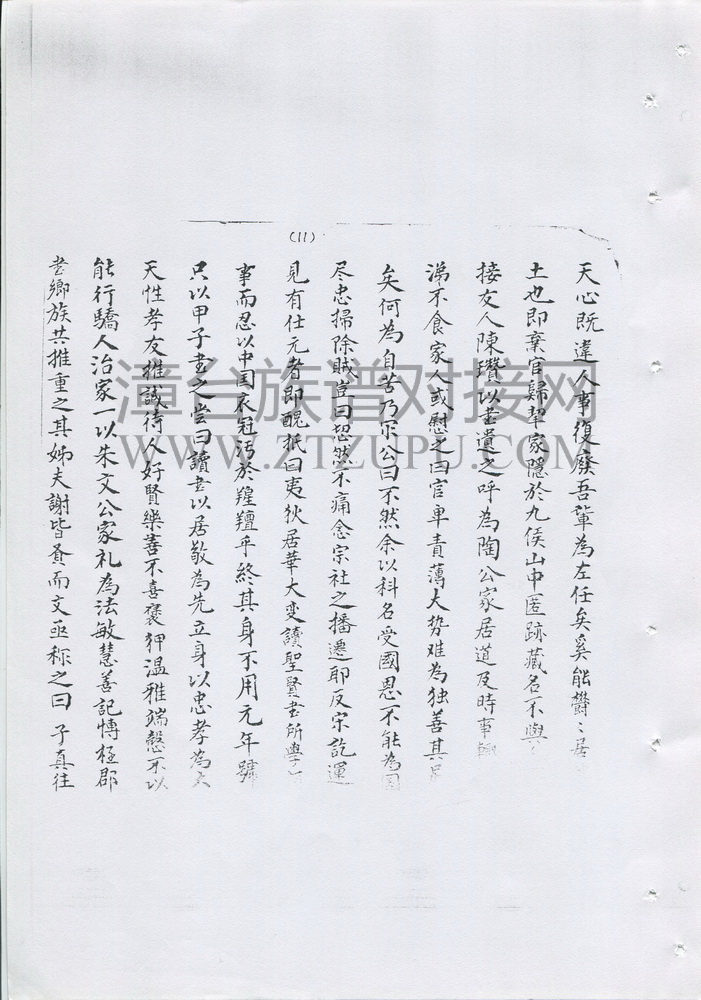 (11)
天心既違人事復廢吾輩為左任矣奚能欝〻居
土也即棄官歸挈家隱於九侯山中匿跡藏名不與
接友人陳瓚以書遺之呼為陶公家居道及時事輙
涕不食家人或慰之曰官卑責薄大势难為独善其
矣何為自苦乃尔公曰不然余以科名受國恩不能為國
尽忠掃除賊豈曰恝然不痛念宗社之播遷耶反宗訖運
見有仕元者即醜抵曰夷狄居華大变讀聖賢書所學
事而忍以中国衣冠污於羶乎終其身不用元年號
只以甲子書之尝曰讀書以居敬為先立身以忠孝為大
天性孝友推誠待人好賢樂善不喜褻狎温雅端慤不以
能行驕人治家一以朱文公家礼為法敏慧善記愽極郡
老鄉族共推重之其姊夫謝皆賁而文亟称之曰 子真往
漳台族谱对接网
WWW.ZTZUPU.COM